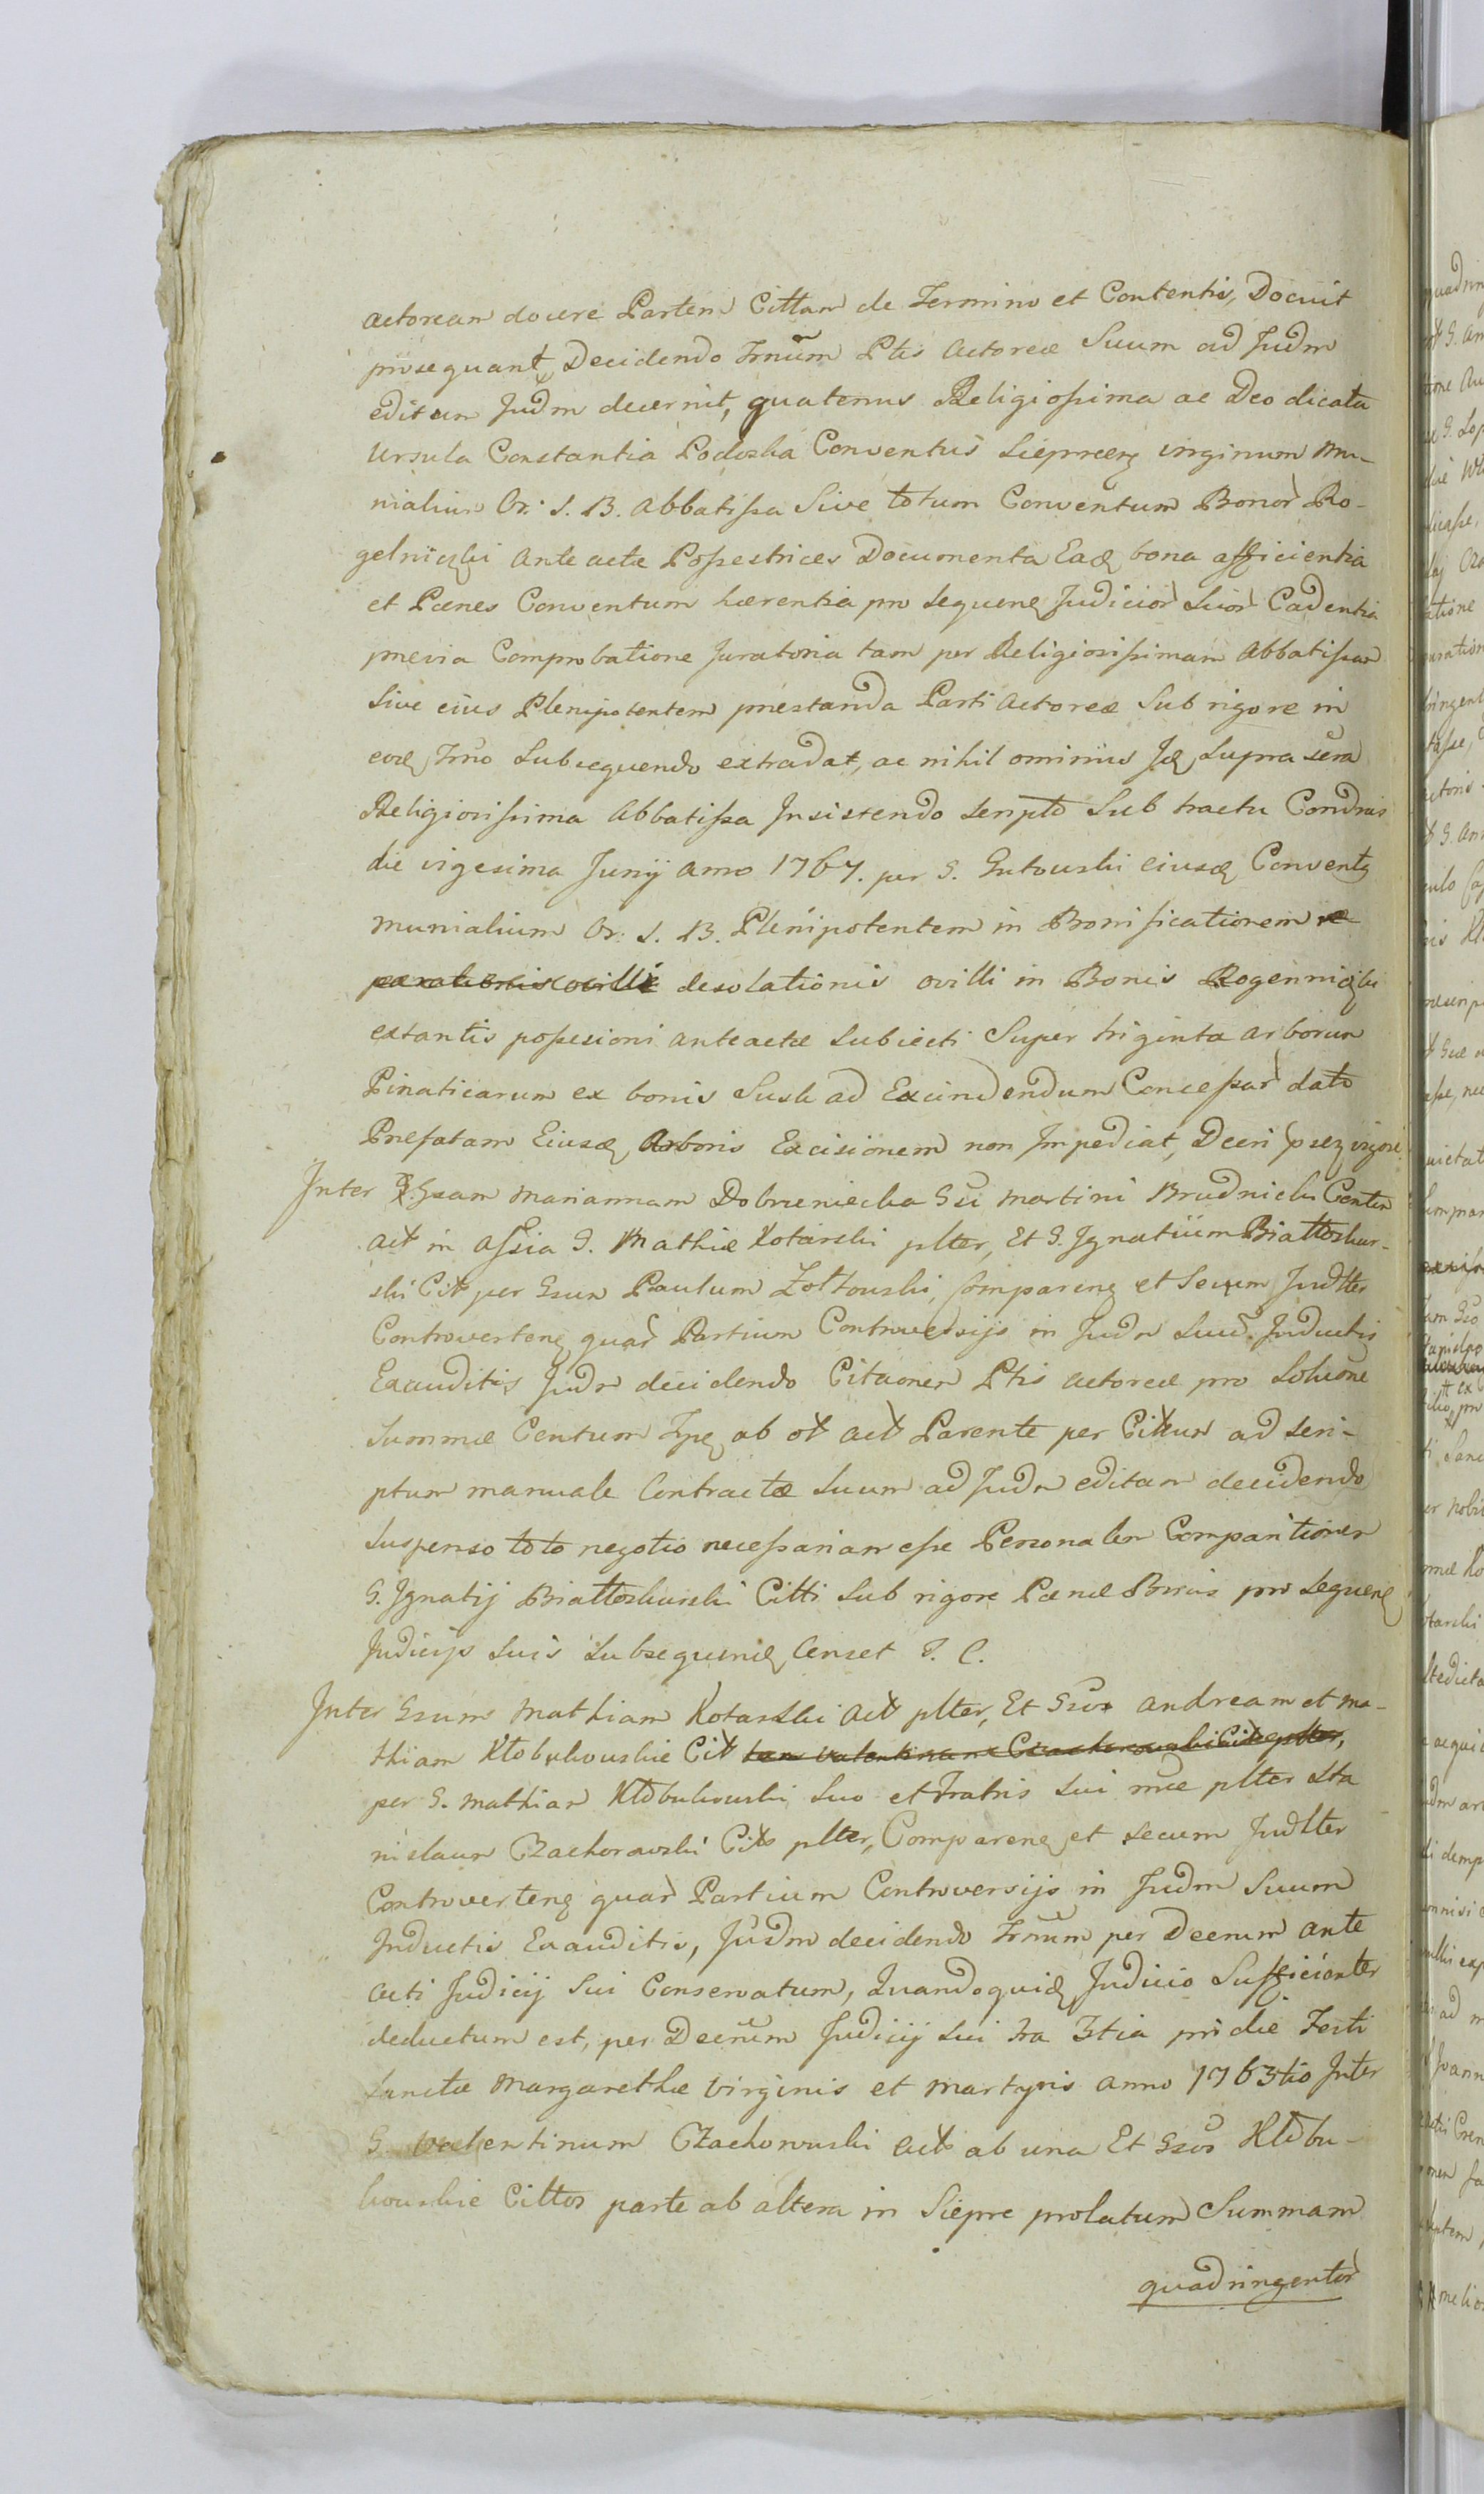 actoream docere Partem Cittam de Termino et Contentis, Docuit
prosequant, Decidendo Trnum Ptis Actoreæ Suum ad Judm
editam Judm decernit, quatenus Religiossima ac Deo dicata
Ursula Constantia Podoska Conventus Sieprcen virginum Mo-
nialium Or: S. B. Abbatissa Sive totum Conventum Bonor Ro-
gelniczki Ante actæ Possestrices Documenta Eadq bona afficientia
et Pœnes Conventum hærentia pro sequenq Judicior Suor Cadentia
prævia Comprobatione Juratoria tam per Religiosissimam Abbatissam
Sive eius Plenipotentem præstanda Parti Actoreæ Sub rigore in
eodq Trno Subsequendo extradat, ac nihil ominus Jdq Supra
Religiosissima Abbatissa Insistendo scripto Sub tractu Condnis
die vigesima Junij anno 1767. per G. Gutowski eiusdq Convents
Munialium Or: S. B. Plenipotentem in Bonificationem re
parationis ovilli desolationis ovilli in Bonis Rogenniczki
extantis possesioni anteactæ Subiecti Super triginta arborum
Pinaticarum ex bonis Susk ad Excindendum Concessar dato
Præfatam Eiusdq Arboris Excisionem non Impediat, Decri pseq vigore
Inter Gsam Mariannam Dobrzeniecka Gsi Martini Brudnicki
act in assia G. Mathiæ Kotarski plter, Et G. Ignatium Biattoskur-
ski Citt per Gsum Paulum Zoltowski, Comparenq et Secum Judlter
Controvertenq quar Partium Controversijs in Judm Suum Inductis
Exauditis Judm decidendo Citaonem Ptis actoreæ pro Solucone
Summæ Centum Typq ab ot act Parente per Cittum ad scri-
ptum manuale Contractæ Suum ad Judm editam decidendo
Suspenso toto negotio necessariam esse Personalem Comparitionem
G. Ignatij Biattoskurski Citti Sub rigore Pœnæ Bnnis pro sequenq
Judicijs Suis Subsequend Censet P. C.
Inter Gsum Mathiam Kotarski Act plter, Et Gsos Andream et Ma-
thiam Klobukowskie Citt tam Valentinum Czachorowski Citt plter,
per G. Mathiam Klobukowski Suo et Fratris Sui nne plter Sta
nislaum Czachorowski Citt plter, Comparenq et secum Judlter
Controvertenq quar Partium Controversijs in Judm Suum
Inductis Exauditis, Judm decidendo Trnum per Decrum ante
acti Judicij Sui Conservatum, Quandoquidq Judicio Sufficienter
deductum est, per Decrum Judicij Sui fra 3tia pridie Festi
Sanctæ Margarethæ Virginis et Martyris anno 1763tio Inter
G. Valentinum Czachorowski Act ab una Et Gsos Klobu-
kowskie Cittos parte ab altera in Siepre prolatum Summam
quadringentor